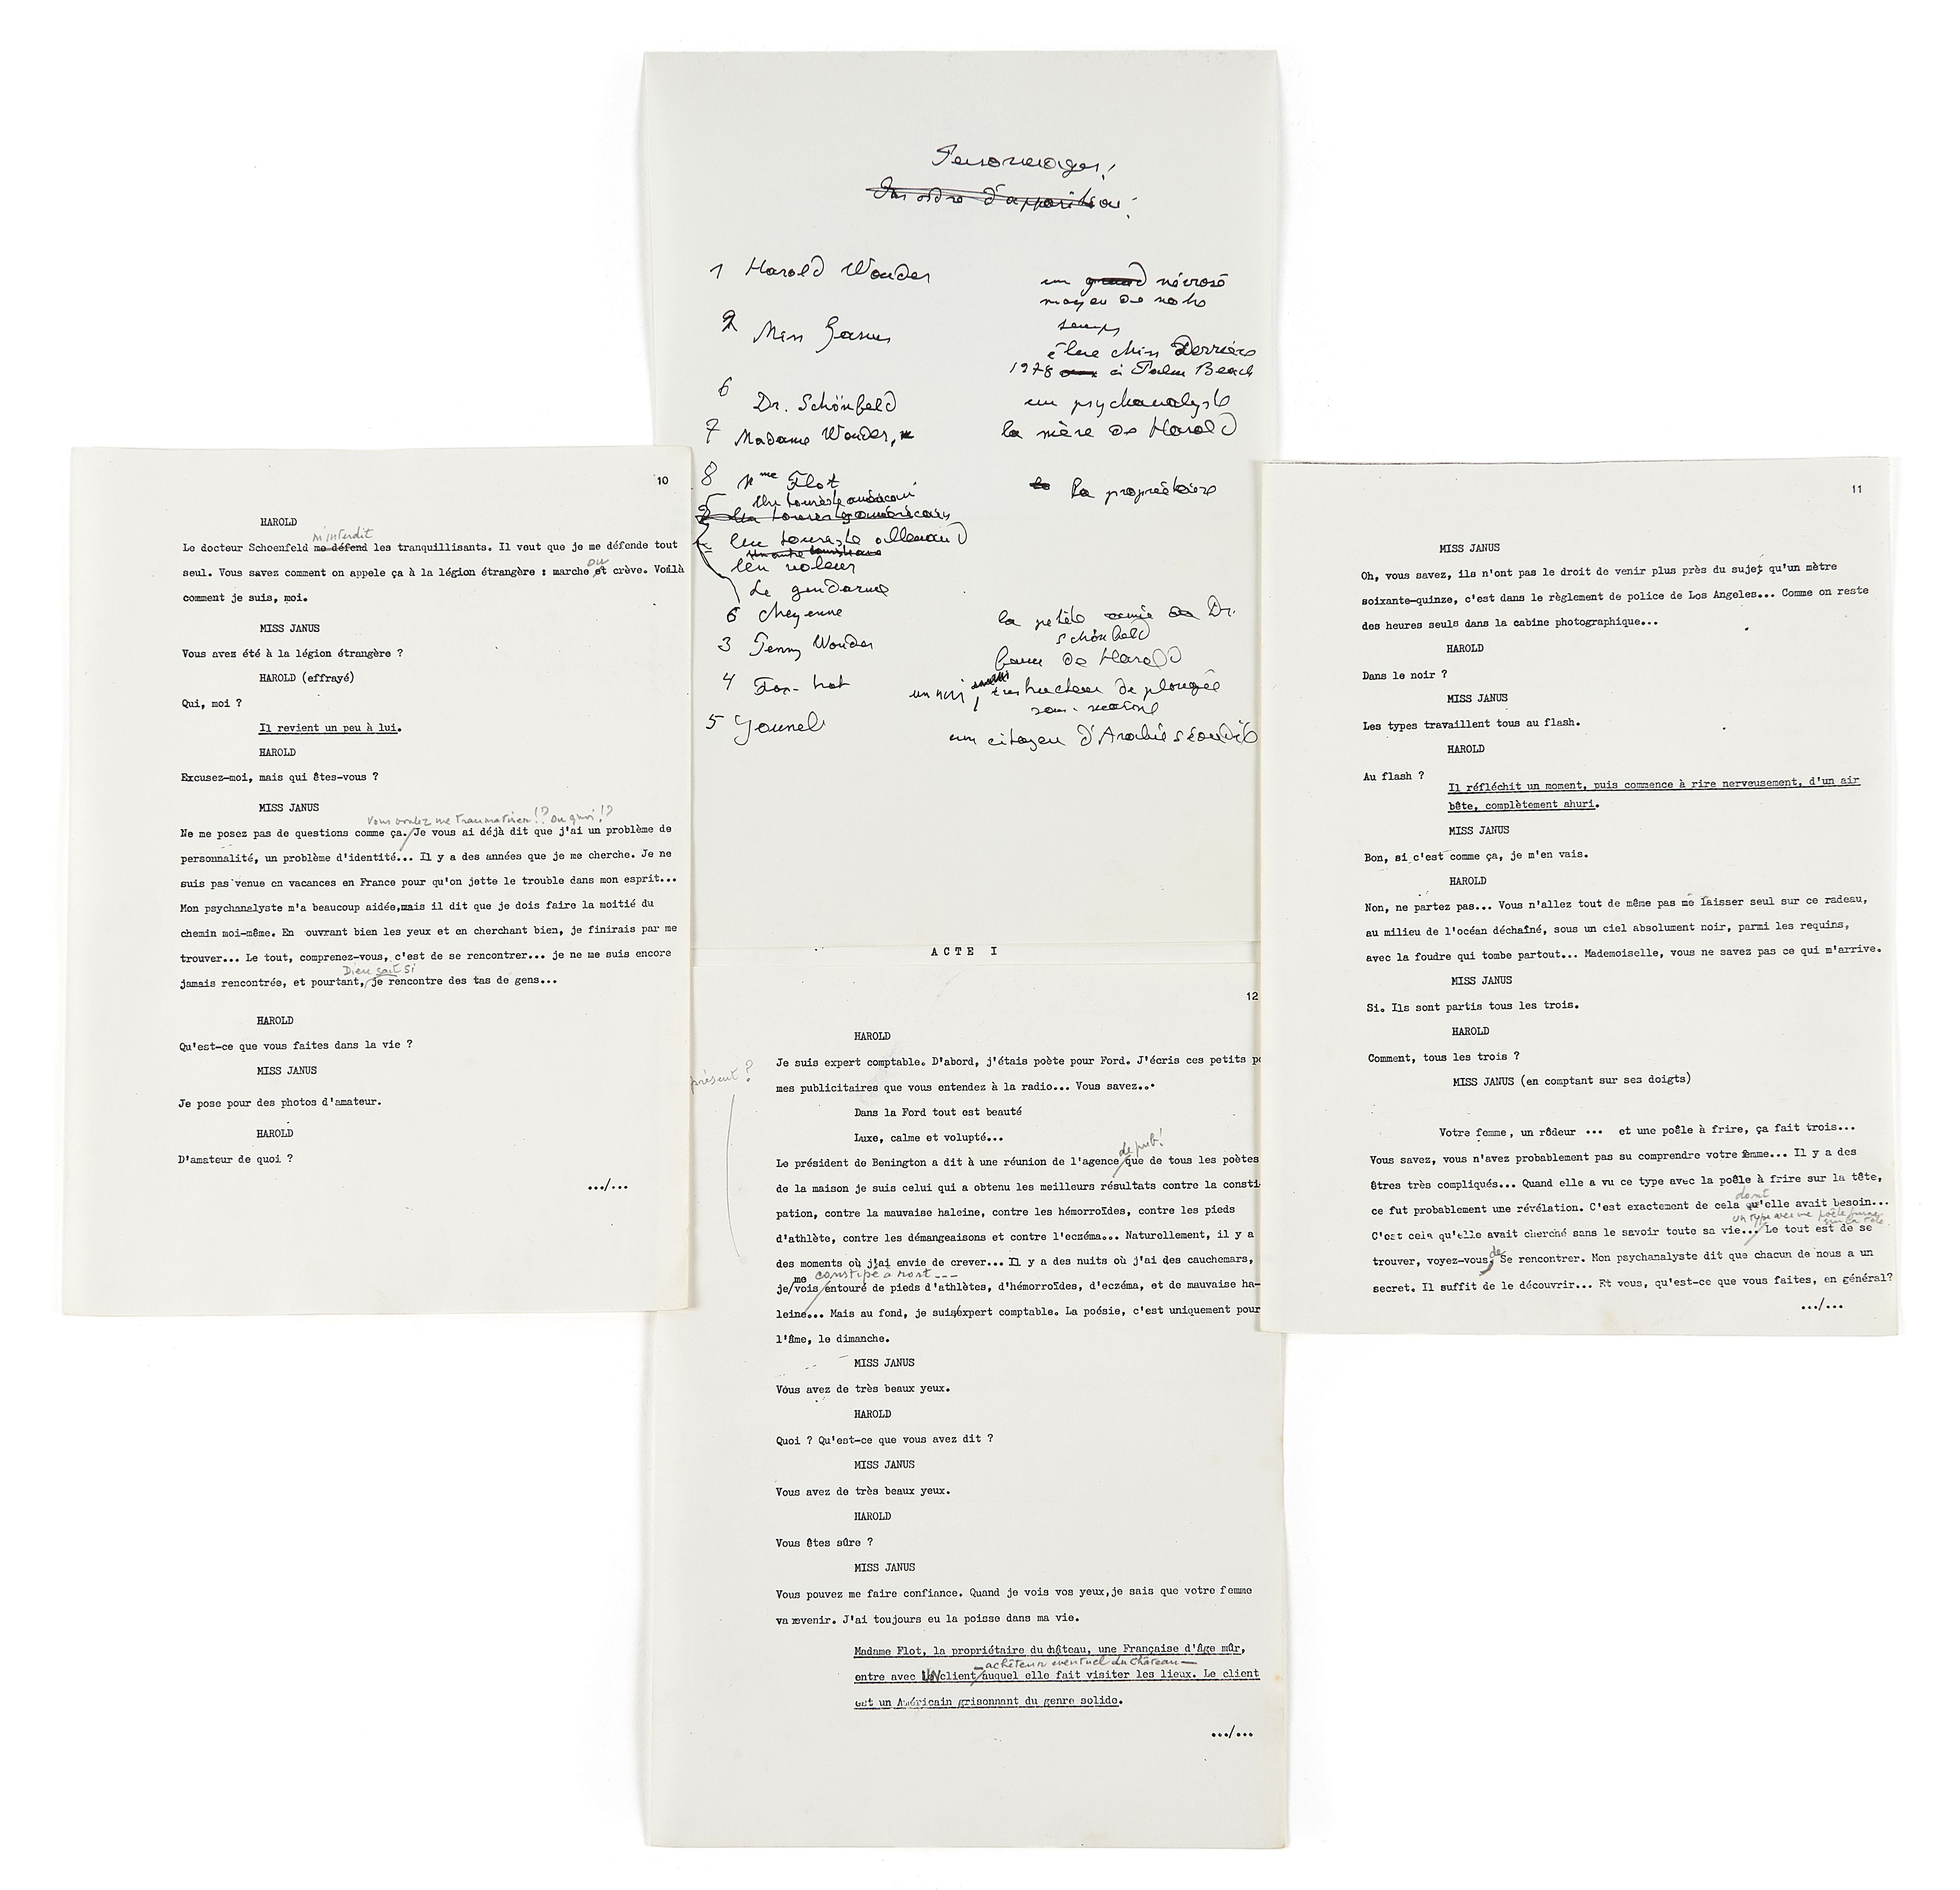 Personnages:
Par ordre d'apparition:
1 Harold Wonder un grand névrosé
moyen de notre
temps
2 Miss Janus élue Miss Derrière
1978 à Palm Beach
6 Dr. Schönfeld un psychanalyste
7 Madame Wonder, la mère de Harold
8 Mme Flot la propriétaire
5 Un touriste américain
Un touriste américain
Un touriste allemand
Un voleur
Le gendarme
6 Cheyenne la petite amie de Dr.
Schönfeld
3 Jenny Wonder femme de Harold
4 un noir, instructeur de plongée
sous-marine
5 un citoyen d'Arabie séoudite
ACTE I
10
HAROLD
m'interdit
Le docteur Schoenfeld me défend les tranquillisants. Il veut que je me défende tout
ou
seul. Vous savez comment on appele ça à la légion étrangère : marche et crève. Voilà
comment je suis, moi.
MISS JANUS
Vous avez été à la légion étrangère ?
HAROLD (effrayé)
Qui, moi ?
Il revient un peu à lui.
HAROLD
Excusez-moi, mais qui êtes-vous ?
MISS JANUS
Vous voulez me traumatiser !? Ou quoi !?
Ne me posez pas de questions comme ça. Je vous ai déjà dit que j'ai un problème de
personnalité, un problème d'identité... Il y a des années que je me cherche. Je ne
suis pas venue en vacances en France pour qu'on jette le trouble dans mon esprit...
Mon psychanalyste m'a beaucoup aidée,mais il dit que je dois faire la moitié du
chemin moi-même. En ouvrant bien les yeux et en cherchant bien, je finirais par me
trouver... Le tout, comprenez-vous, c'est de se rencontrer... je ne me suis encore
Dieu sait si
jamais rencontrée, et pourtant, je rencontre des tas de gens...
HAROLD
Qu'est-ce que vous faites dans la vie ?
MISS JANUS
Je pose pour des photos d'amateur.
HAROLD
D'amateur de quoi ?
.../...
11
MISS JANUS
Oh, vous savez, ils n'ont pas le droit de venir plus près du sujet qu'un mètre
soixante-quinze, c'est dans le règlement de police de Los Angeles... Comme on reste
des heures seuls dans la cabine photographique...
HAROLD
Dans le noir ?
MISS JANUS
Les types travaillent tous au flash.
HAROLD
Au flash ?
Il réfléchit un moment, puis commence à rire nerveusement, d'un air
bête, complètement ahuri.
MISS JANUS
Bon, si c'est comme ça, je m'en vais.
HAROLD
Non, ne partez pas... Vous n'allez tout de même pas me laisser seul sur ce radeau,
au milieu de l'océan déchaîné, sous un ciel absolument noir, parmi les requins,
avec la foudre qui tombe partout... Mademoiselle, vous ne savez pas ce qui m'arrive.
MISS JANUS
Si. Ils sont partis tous les trois.
HAROLD
Comment, tous les trois ?
MISS JANUS (en comptant sur ses doigts)
Votre femme, un rôdeur ... et une poêle à frire, ça fait trois...
Vous savez, vous n'avez probablement pas su comprendre votre femme... Il y a des
êtres très compliqués... Quand elle a vu ce type avec la poêle à frire sur la tête,
dont
ce fut probablement une révélation. C'est exactement de cela qu'elle avait besoin...
un type avec une poêle
sur la tête
C'est cela qu'elle avait cherché sans le savoir toute sa vie... Le tout est de se
de
trouver, voyez-vous, Se rencontrer. Mon psychanalyste dit que chacun de nous a un
secret. Il suffit de le découvrir... Et vous, qu'est-ce que vous faites, en général?
.../...
12
HAROLD
Je suis expert comptable. D'abord, j'étais poète pour Ford. J'écris ces petits
présent ?
mes publicitaires que vous entendez à la radio... Vous savez...
Dans la Ford tout est beauté
Luxe, calme et volupté...
de pub!
Le président de Benington a dit à une réunion de l'agence que de tous les poètes
de la maison je suis celui qui a obtenu les meilleurs résultats contre la consti-
pation, contre la mauvaise haleine, contre les hémorroïdes, contre les pieds
d'athlète, contre les démangeaisons et contre l'eczéma... Naturellement, il y a
des moments où j'ai envie de crever... Il y a des nuits où j'ai des cauchemars,
me constipé à mort ---
je vois entouré de pieds d'athlètes, d'hémorroïdes, d'eczéma, et de mauvaise ha-
leine... Mais au fond, je suis expert comptable. La poésie, c'est uniquement pour
l'âme, le dimanche.
MISS JANUS
Vous avez de très beaux yeux.
HAROLD
Quoi ? Qu'est-ce que vous avez dit ?
MISS JANUS
Vous avez de très beaux yeux.
HAROLD
Vous êtes sûre ?
MISS JANUS
Vous pouvez me faire confiance. Quand je vois vos yeux,je sais que votre femme
va revenir. J'ai toujours eu la poisse dans ma vie.
Madame Flot, la propriétaire du château, une Française d'âge mûr,
- achêteur eventuel du château -
entre avec UN client auquel elle fait visiter les lieux. Le client
est un Américain grisonnant du genre solide.
.../...